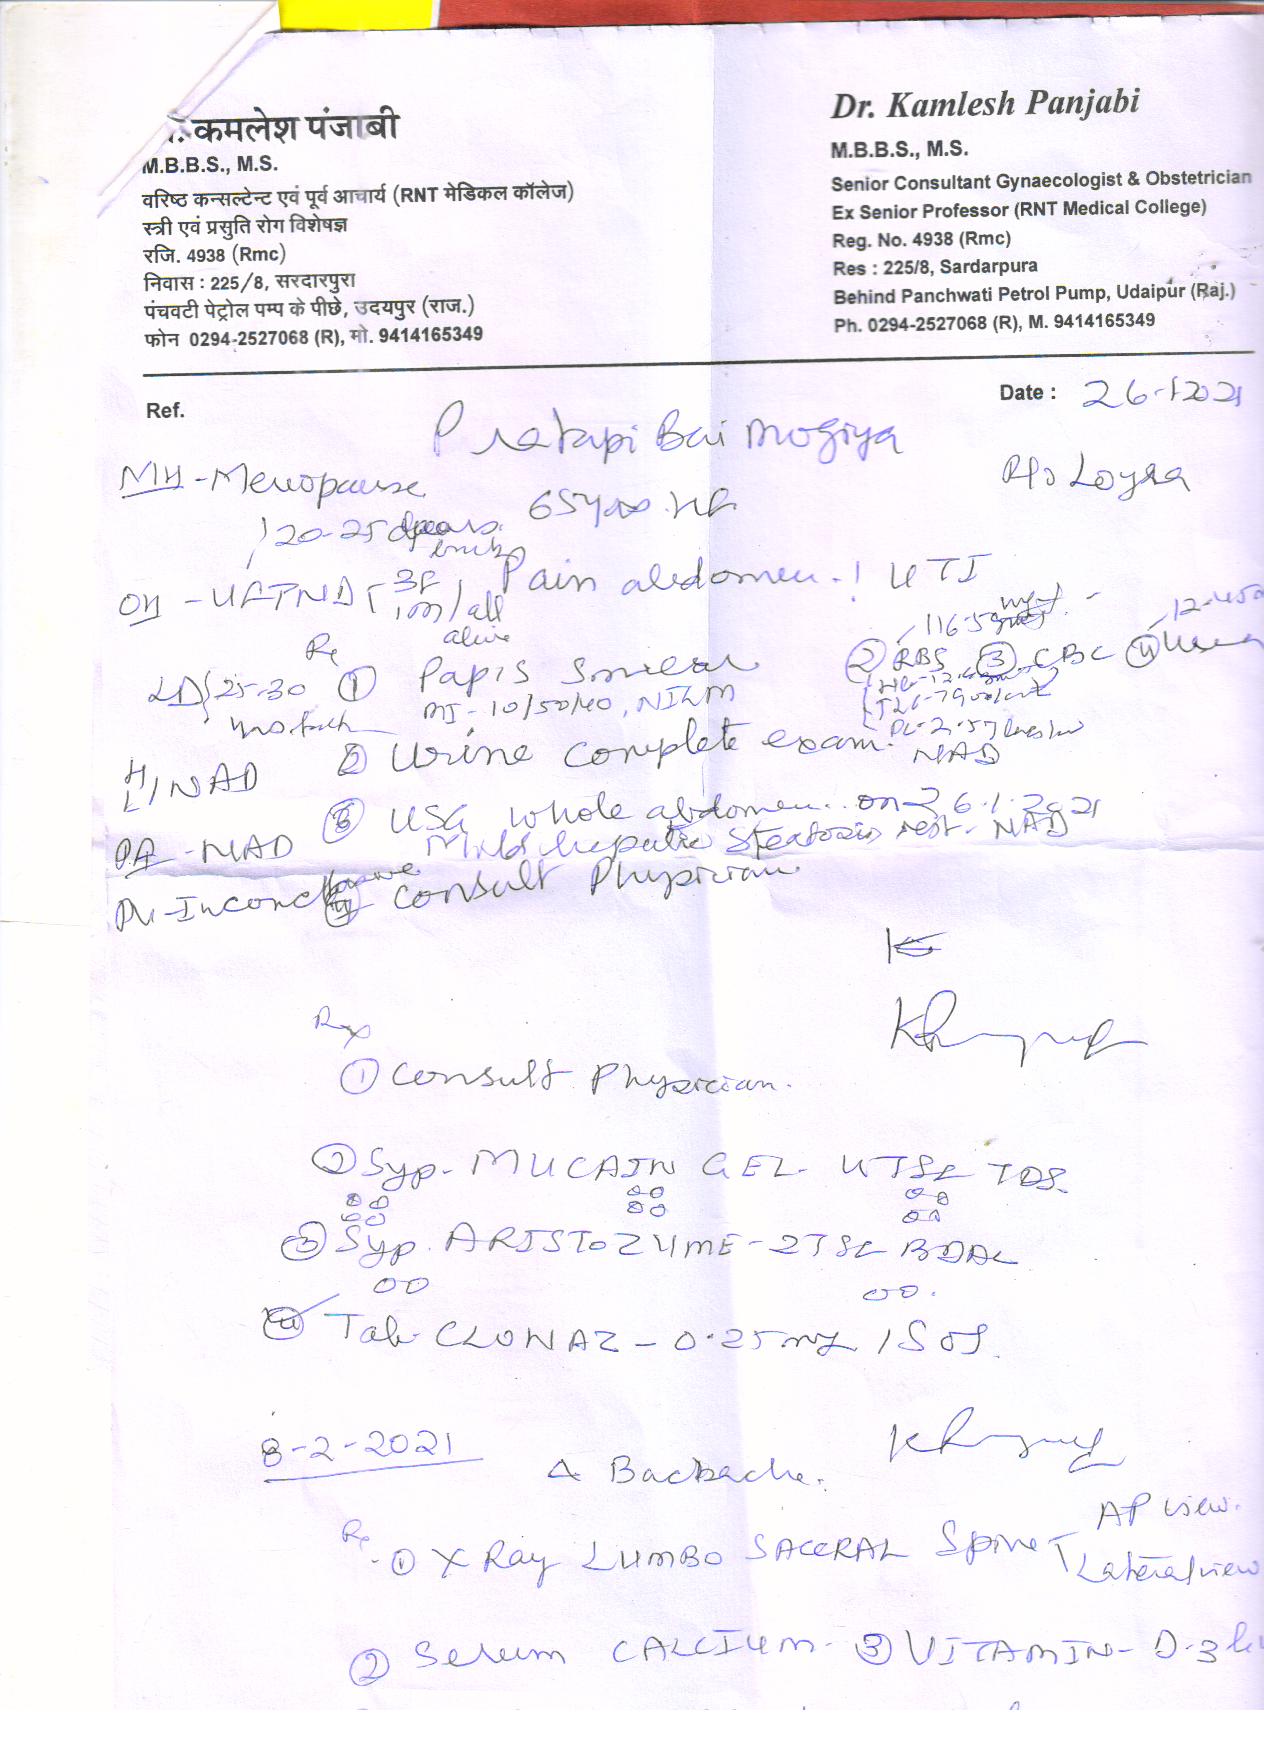 कमलेश पंजाबी
M.B.B.S., M.S.
वरिष्ठ कन्सल्टेन्ट एवं पूर्व आचार्य (RNT मेडिकल कॉलेज)
स्त्री एवं प्रसुति रोग विशेषज्ञ
रजि. 4938 (Rmc)
निवास : 225/8, सरदारपुरा
पंचवटी पेट्रोल पम्प के पीछे, उदयपुर (राज.)
फोन 0294-2527068 (R), मो. 9414165349
Dr. Kamlesh Panjabi
M.B.B.S., M.S.
Senior Consultant Gynaecologist & Obstetrician
Ex Senior Professor (RNT Medical College)
Reg. No. 4938 (Rmc)
Res : 225/8, Sardarpura
Behind Panchwati Petrol Pump, Udaipur (Raj.)
Ph. 0294-2527068 (R), M. 9414165349
Ref.
Date : 26-1-2021
Pratapi Bai Mogiya
MH - Menopause
R/o Loyra
20-25 years
Pain abdomen - ! UTI
OH - UFTND 3F 1M / all
alive
① Pap's Smear ② RBS ③ CBC ④
LD 25-30
MI - 10/50/40, NILM
② Urine complete exam. NAD
H/L NAD
③ USG whole abdomen on 26.1.2021
Mild hepatic Steatosis rest - NAD
PA - NAD
④ Consult Physician
Rx
① Consult Physician.
② Syp. MUCAIN GEL TDS.
③ Syp. ARISTOZYME - 2TSF
④ Tab CLONAZ - 0.25mg 1 SOS.
8-2-2021
Δ Backache.
① X Ray LUMBO SACCRAL Spine
AP view.
Lateral view
② Serum CALCIUM - ③ VITAMIN - D-3